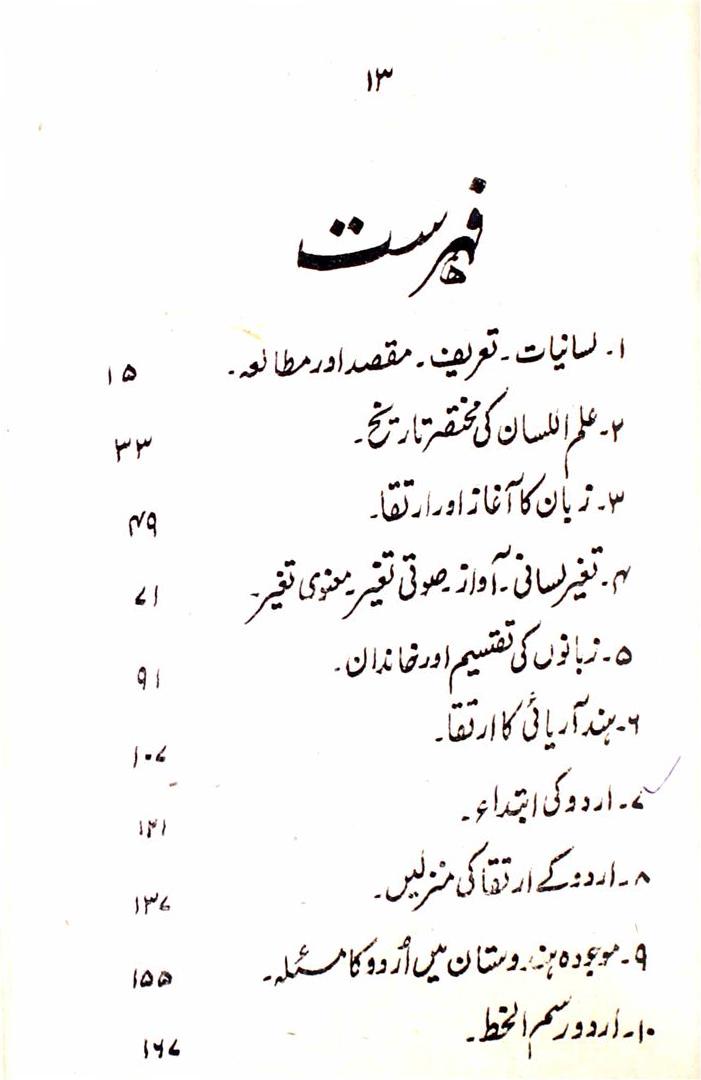 ۱۳
فہرست
۱۔ لسانیات۔ تعریف۔ مقصد اور مطالعہ۔ ۱۵
۲۔ علم اللسان کی مختصر تاریخ۔ ۳۳
۳۔ زبان کا آغاز اور ارتقا۔ ۴۹
۴۔ تغیر لسانی۔ آواز۔ صوتی تغیر۔ معنوی تغیر۔ ۷۱
۵۔ زبانوں کی تقسیم اور خاندان۔ ۹۱
۶۔ ہند آریائی کا ارتقا۔ ۱۰۷
۷۔ اردو کی ابتداء۔ ۱۲۱
۸۔ اردو کے ارتقا کی منزلیں۔ ۱۳۷
۹۔ موجودہ ہندوستان میں اُردو کا مسئلہ۔ ۱۵۵
۱۰۔ اردو رسم الخط۔ ۱۶۷